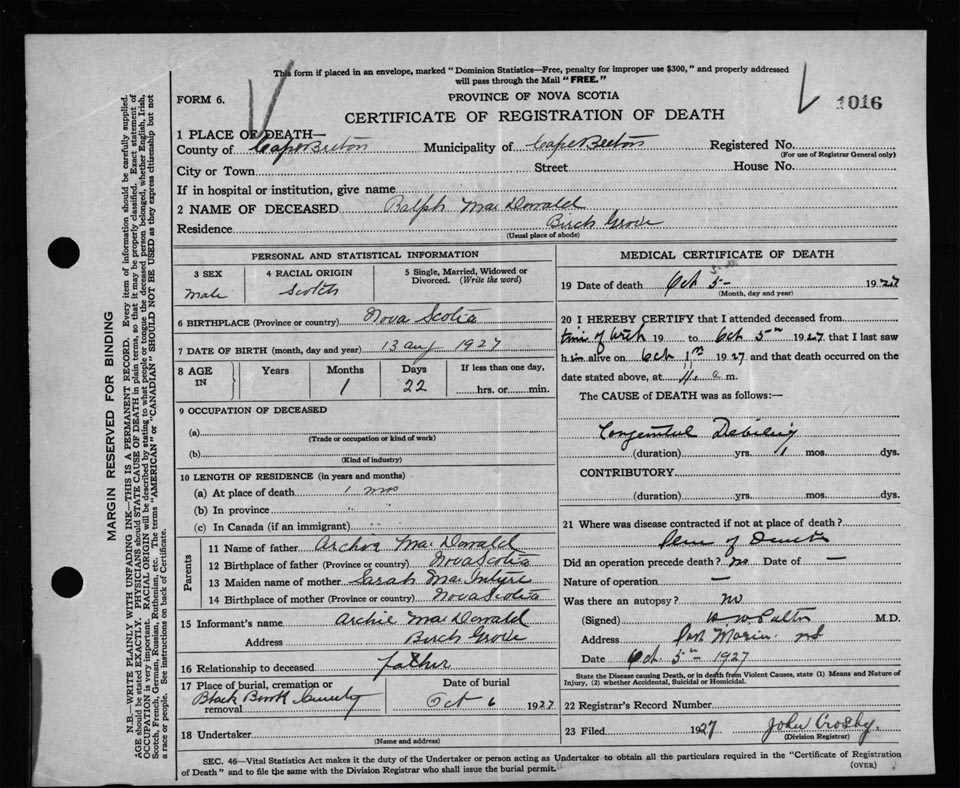 This form if placed in an envelope, marked "Dominion Statistics—Free, penalty for improper use $300," and properly addressed
will pass through the Mail "FREE."
FORM 6.
PROVINCE OF NOVA SCOTIA
1016
CERTIFICATE OF REGISTRATION OF DEATH
1 PLACE OF DEATH—
County of Cape Breton Municipality of Cape Breton Registered No.
(For use of Registrar General only)
City or Town Street House No.
If in hospital or institution, give name
2 NAME OF DECEASED Ralph MacDonald
Residence Birch Grove
(Usual place of abode)
PERSONAL AND STATISTICAL INFORMATION
3 SEX 4 RACIAL ORIGIN 5 Single, Married, Widowed or
Divorced. (Write the word)
Male Scotch
6 BIRTHPLACE (Province or country) Nova Scotia
7 DATE OF BIRTH (month, day and year) 13 Aug 1927
8 AGE IN Years Months Days If less than one day,
1 22 hrs. or min.
9 OCCUPATION OF DECEASED
(a)
(Trade or occupation or kind of work)
(b)
(Kind of industry)
10 LENGTH OF RESIDENCE (in years and months)
(a) At place of death 1 mos
(b) In province " "
(c) In Canada (if an immigrant)
Parents
11 Name of father Archie MacDonald
12 Birthplace of father (Province or country) Nova Scotia
13 Maiden name of mother Sarah MacIntyre
14 Birthplace of mother (Province or country) Nova Scotia
15 Informant's name Archie MacDonald
Address Birch Grove
16 Relationship to deceased father
17 Place of burial, cremation or removal Date of burial
Black Brook Oct 6 1927
18 Undertaker
(Name and address)
MEDICAL CERTIFICATE OF DEATH
19 Date of death Oct 5- 1927
(Month, day and year)
20 I HEREBY CERTIFY that I attended deceased from
time of birth 19 to Oct 5th 1927 that I last saw
him alive on Oct 1st 1927 and that death occurred on the
date stated above, at 11 a m.
The CAUSE of DEATH was as follows:—
Congenital Debility
(duration) yrs. 1 mos. dys.
CONTRIBUTORY
(duration) yrs. mos. dys.
21 Where was disease contracted if not at place of death?
of
Did an operation precede death? no Date of —
Nature of operation —
Was there an autopsy? no
(Signed) M.D.
Address Port Morien NS
Date Oct 5th 1927
State the Disease causing Death, or in death from Violent Causes, state (1) Means and Nature of
Injury, (2) whether Accidental, Suicidal or Homicidal.
22 Registrar's Record Number
23 Filed 1927 John Crosby
(Division Registrar)
SEC. 46—Vital Statistics Act makes it the duty of the Undertaker or person acting as Undertaker to obtain all the particulars required in the "Certificate of Registration
of Death" and to file the same with the Division Registrar who shall issue the burial permit.
(OVER)
MARGIN RESERVED FOR BINDING
N.B.—WRITE PLAINLY WITH UNFADING INK—THIS IS A PERMANENT RECORD. Every item of information should be carefully supplied.
AGE should be stated EXACTLY. PHYSICIANS should STATE CAUSE OF DEATH in plain terms, so that it may be properly classified. Exact statement of
OCCUPATION is very important. RACIAL ORIGIN will be described by stating to what people or tongue the deceased person belonged, whether English, Irish,
Scotch, French, German, Russian, Ruthenian, etc. The terms "AMERICAN" or "CANADIAN" SHOULD NOT BE USED as they express citizenship but not
a race or people. See instructions on back of Certificate.